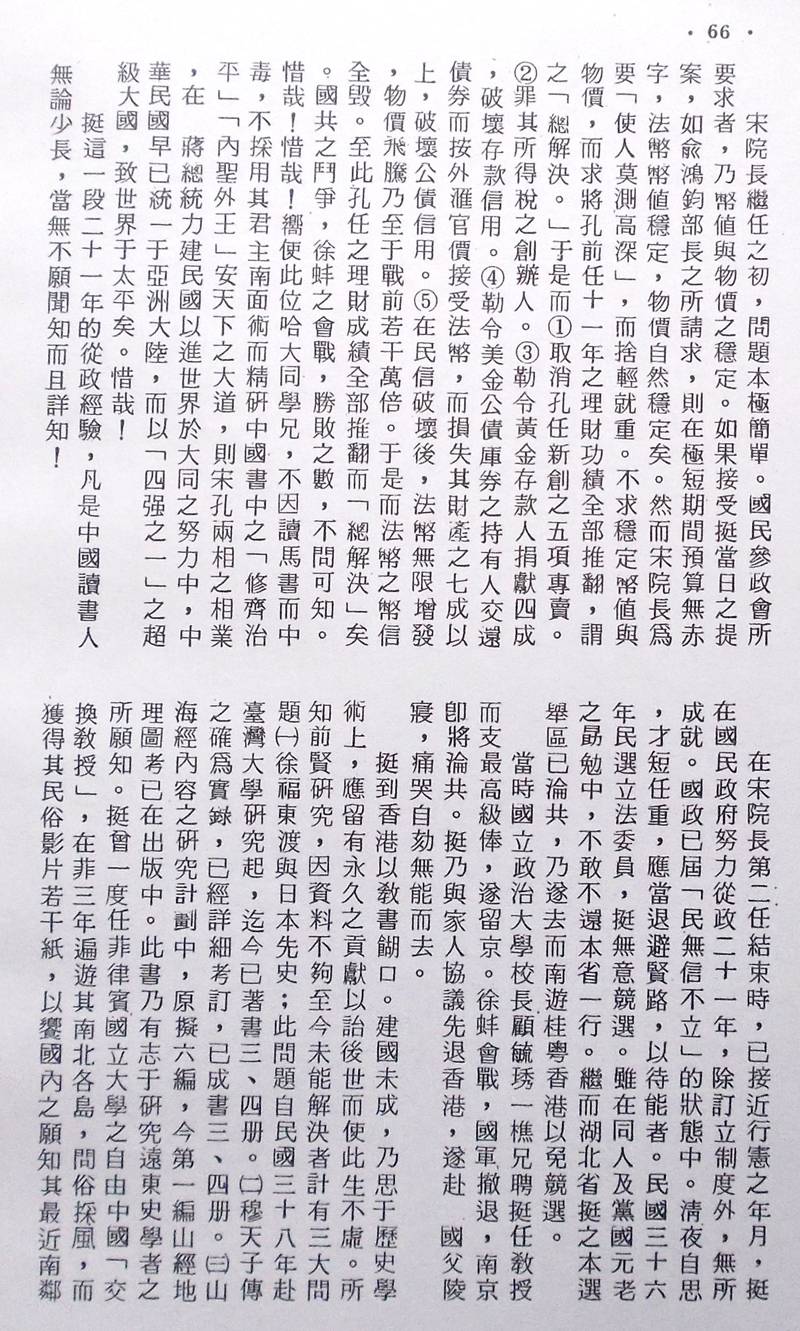 · 66 ·
宋院長繼任之初，問題本極簡單。國民參政會所
要求者，乃幣値與物價之穩定。如果接受挺當日之提
案，如兪鴻鈞部長之所請求，則在極短期間預算無赤
字，法幣幣値穩定，物價自然穩定矣。然而宋院長爲
要「使人莫測高深」，而捨輕就重。不求穩定幣値與
物價，而求將孔前任十一年之理財功績全部推翻，謂
之「總解決。」于是而①取消孔任新創之五項專賣。
②罪其所得稅之創辦人。③勒令黃金存款人捐獻四成
，破壞存款信用。④勒令美金公債庫券之持有人交還
債券而按外滙官價接受法幣，而損失其財產之七成以
上，破壞公債信用。⑤在民信破壞後，法幣無限增發
，物價飛騰乃至于戰前若干萬倍。于是而法幣之幣信
全毀。至此孔任之理財成績全部推翻而「總解決」矣
。國共之鬥爭，徐蚌之會戰，勝敗之數，不問可知。
惜哉！惜哉！嚮使此位哈大同學兄，不因讀馬書而中
毒，不採用其君主南面術而精研中國書中之「修齊治
平」「內聖外王」安天下之大道，則宋孔兩相之相業
，在　蔣總統力建民國以進世界於大同之努力中，中
華民國早已統一于亞洲大陸，而以「四强之一」之超
級大國，致世界于太平矣。惜哉！
挺這一段二十一年的從政經驗，凡是中國讀書人
無論少長，當無不願聞知而且詳知！
在宋院長第二任結束時，已接近行憲之年月，挺
在國民政府努力從政二十一年，除訂立制度外，無所
成就。國政已屆「民無信不立」的狀態中。淸夜自思
，才短任重，應當退避賢路，以待能者。民國三十六
年民選立法委員，挺無意競選。雖在同人及黨國元老
之勗勉中，不敢不還本省一行。繼而湖北省挺之本選
舉區已淪共，乃遂去而南遊桂粤香港以免競選。
當時國立政治大學校長顧毓琇一樵兄聘挺任敎授
而支最高級俸，遂留京。徐蚌會戰，國軍撤退，南京
卽將淪共。挺乃與家人協議先退香港，遂赴　國父陵
寢，痛哭自劾無能而去。
挺到香港以敎書餬口。建國未成，乃思于歷史學
術上，應留有永久之貢獻以詒後世而使此生不虛。所
知前賢研究，因資料不夠至今未能解決者計有三大問
題㈠徐福東渡與日本先史；此問題自民國三十八年赴
臺灣大學研究起，迄今已著書三、四册。㈡穆天子傳
之確爲實錄，已經詳細考訂，已成書三、四册。㈢山
海經內容之研究計劃中，原擬六編，今第一編山經地
理圖考已在出版中。此書乃有志于研究遠東史學者之
所願知。挺曾一度任菲律賓國立大學之自由中國「交
換敎授」，在菲三年遍遊其南北各島，問俗採風，而
獲得其民俗影片若干紙，以饗國內之願知其最近南鄰